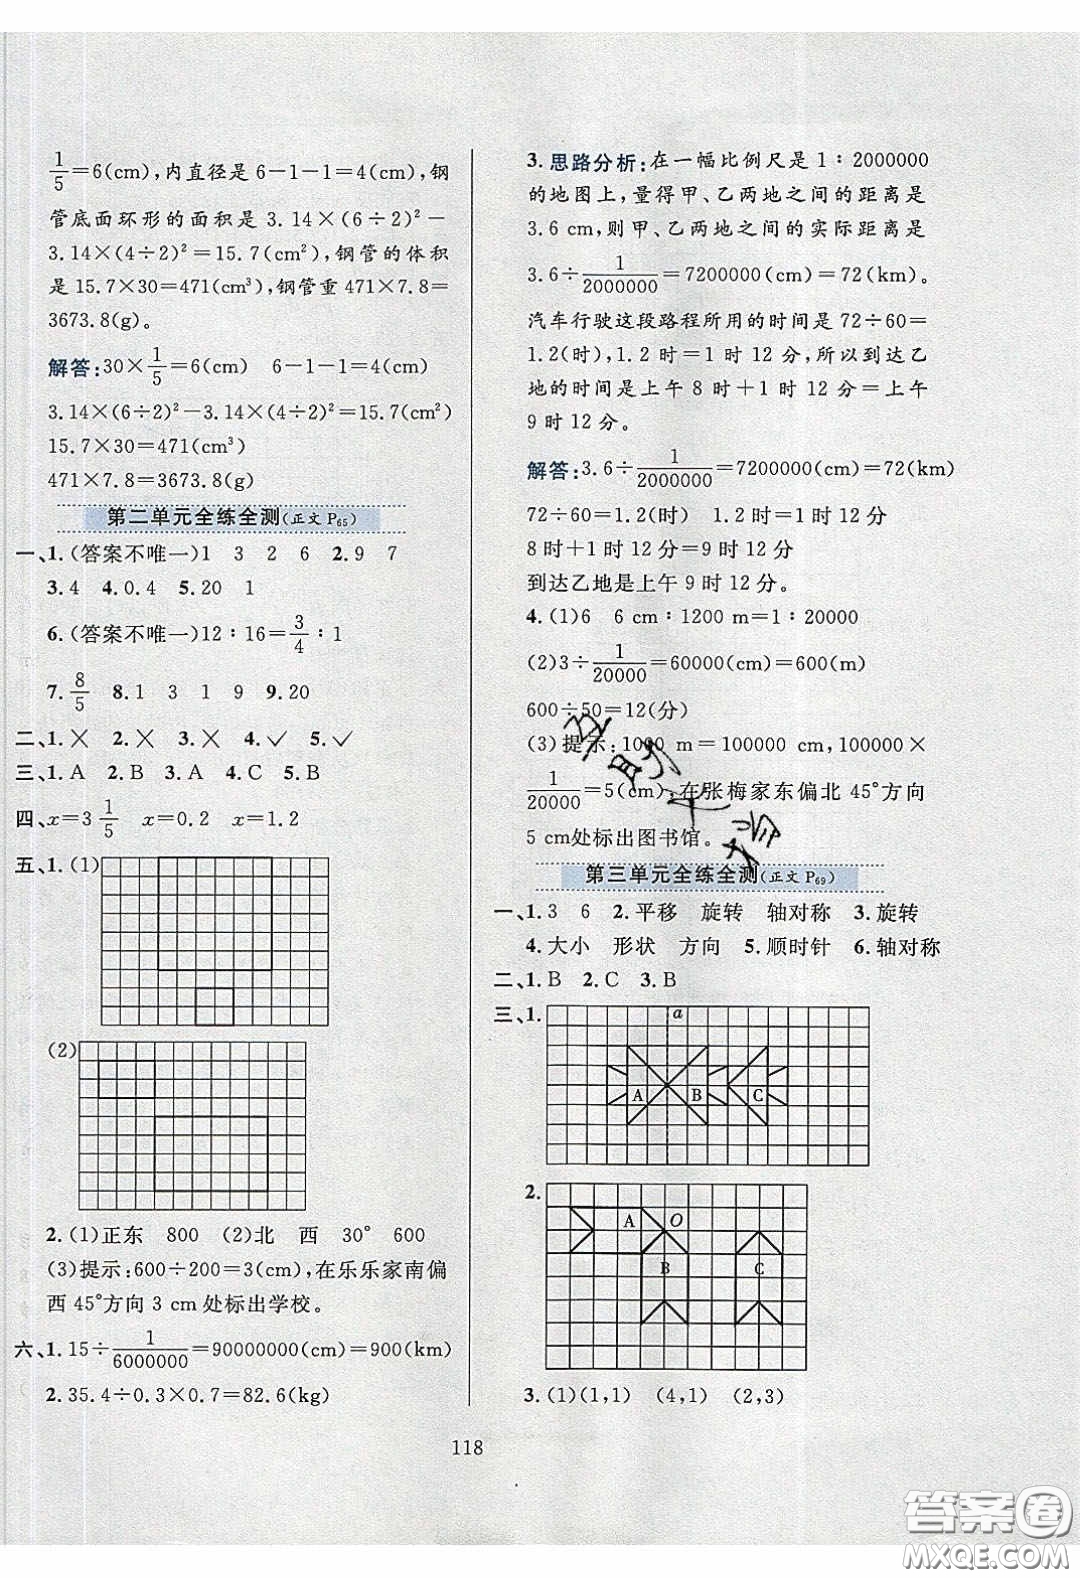 1/5=6(cm),内直径是 6-1-1=4(cm),钢
管底面环形的面积是 3.14×(6÷2)²-
3.14×(4÷2)²=15.7(cm²),钢管的体积
是 15.7×30=471(cm³),钢管重 471×7.8=
3673.8(g)。
解答:30×1/5=6(cm) 6-1-1=4(cm)
3.14×(6÷2)²-3.14×(4÷2)²=15.7(cm²)
15.7×30=471(cm³)
471×7.8=3673.8(g)
第二单元全练全测(正文 P65)
一、1.(答案不唯一)1 3 2 6 2.9 7
3.4 4.0.4 5.20 1
6.(答案不唯一)12∶16=3/4∶1
7.8/5 8.1 3 1 9 9.20
二、1.✕ 2.✕ 3.✕ 4.✓ 5.✓
三、1.A 2.B 3.A 4.C 5.B
四、x=3 1/5 x=0.2 x=1.2
五、1.(1)
(2)
2.(1)正东 800 (2)北 西 30° 600
(3)提示:600÷200=3(cm),在乐乐家南偏
西 45°方向 3 cm处标出学校。
六、1.15÷1/6000000=90000000(cm)=900(km)
2.35.4÷0.3×0.7=82.6(kg)
3.思路分析:在一幅比例尺是 1∶2000000
的地图上,量得甲、乙两地之间的距离是
3.6 cm,则甲、乙两地之间的实际距离是
3.6÷1/2000000=7200000(cm)=72(km)。
汽车行驶这段路程所用的时间是 72÷60=
1.2(时),1.2 时=1 时 12 分,所以到达乙
地的时间是上午 8 时+1 时 12 分=
9 时 12 分。
解答:3.6÷1/2000000=7200000(cm)=72(km)
72÷60=1.2(时) 1.2 时=1 时 12 分
8 时+1 时 12 分=9 时 12 分
到达乙地是上午 9 时 12 分。
4.(1)6 6 cm∶1200 m=1∶20000
(2)3÷1/20000=60000(cm)=600(m)
600÷50=12(分)
(3)提示:1000 m=100000 cm,100000×
1/20000=5(cm),在张梅家东偏北 45°方向
5 cm处标出图书馆。
第三单元全练全测(正文 P69)
一、1.3 6 2.平移 旋转 轴对称 3.旋转
4.大小 形状 方向 5.顺时针 6.轴对称
二、1.B 2.C 3.B
三、1.
a
A B C
2.
A O
B C
3.(1)(1,1) (4,1) (2,3)
118
答案卷
MXQE.COM